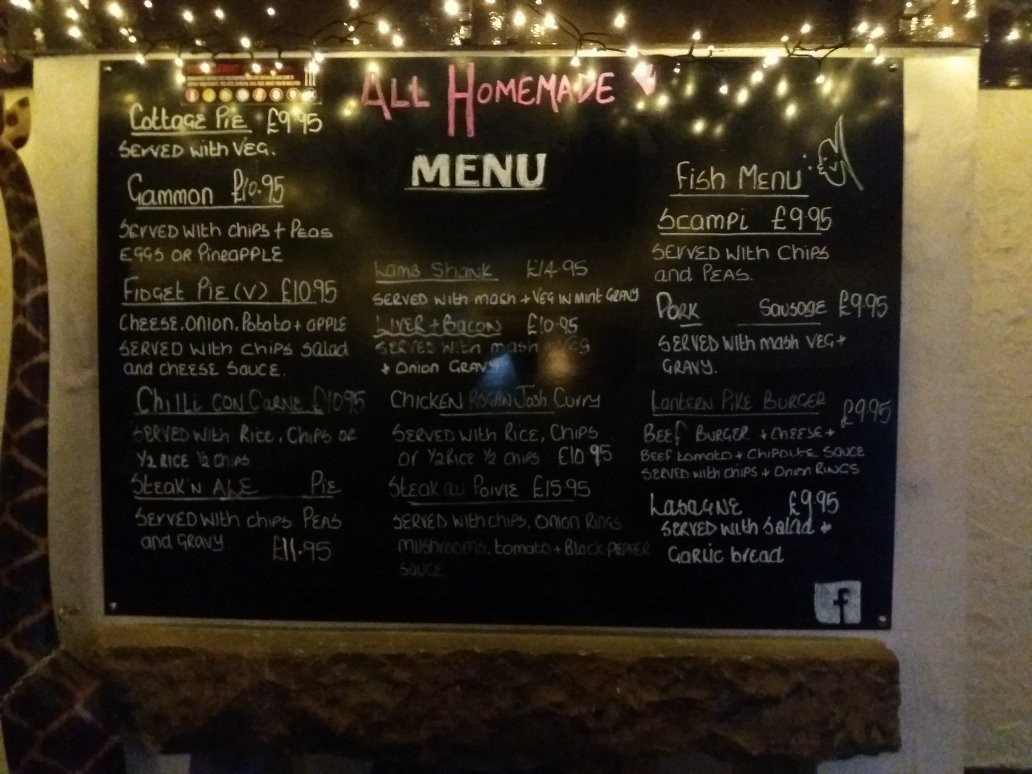 ALL HOMEMADE
MENU
Cottage Pie £9.95
SERVED with VEG.
Gammon £10.95
SERVED with chips + Peas
EGGS OR PineAPPLE
FIDGET PIE (V) £10.95
CHEESE, Onion, Potato + APPLE
SERVED with chips salad
and CHEESE SAUCE.
Chilli CON CARNE £10.95
SERVED with Rice, Chips or
1/2 RICE 1/2 chips
STEAK'N ALE Pie
SERVED with chips PEAS
and GRAVY £11.95
Lamb Shank £14.95
SERVED with mash + VEG in Mint GRAVY
LIVER + BACON £10.95
SERVED with mash + VEG
+ Onion GRAVY
CHICKEN ROGAN Josh Curry
SERVED with RICE, Chips
or 1/2 RICE 1/2 chips £10.95
STEAK au POIVIE £15.95
SERVED with chips, Onion Rings
mushrooms, tomato + BLACK PEPPER
sauce
Fish Menu
Scampi £9.95
SERVED with Chips
and PEAS.
PORK SAUSAGE £9.95
SERVED with mash VEG +
GRAVY.
LANTERN PIKE BURGER £9.95
BEEF BURGER + CHEESE +
BEEF tomato + CHIPOTLE SAUCE
SERVED with chips + Onion RINGS
LASAGNE £9.95
SERVED with Salad +
Garlic bread
f